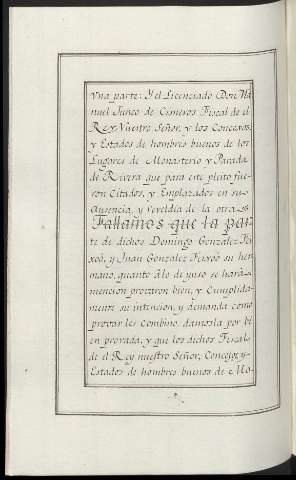 vna parte: Y el Licenciado Don Ma
nuel Junco de Cisneros Fiscal de el
Rey Nuestro Señor, y los Concexos,
y Estados de hombres buenos de los
Lugares de Monasterio y Parada
de Rivera que para este pleito fue-
ron Citados, y Emplazados en su
Ausencia, y reveldia de la otra
Fallamos que la par
te de dichos Domingo Gonzalez
y Juan Gonzalez su her
mano, quanto à lo de yuso se hará
mencion provaron bien, y Cumplida-
mente su intencion, y demanda como
provar les Combino, damosla por bi
en provada, y que los dichos Fiscal
de el Rey nuestro Señor, Concejos y
Estados de hombres buenos de Mo-